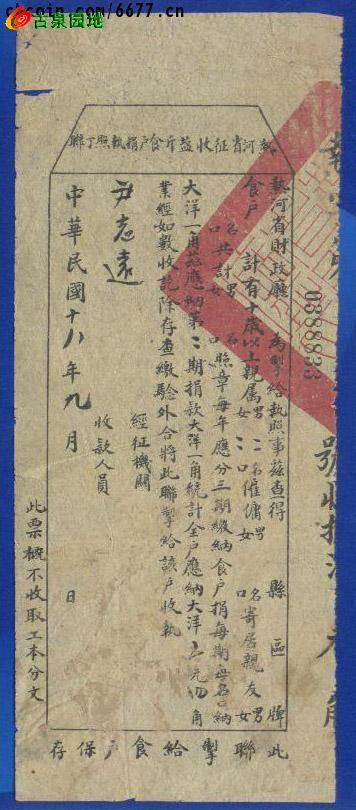 古泉园地
6677.cn
熱河省征收盐斤食戶捐執照丁聯
0388833
號收捐洋
熱河省財政廳 為掣給執照事茲查得 縣 區 牌
食戶 計有十歲以上親属男二名女二口僱傭男 名女 口寄居親友男 名女 口
共計男 名女 口照章每年應分三期繳納食戶捐每期每名口納
大洋一角茲應納第二期捐款大洋一角統計全戶應納大洋 元四角
業經如數收訖除存查繳驗外合將此聯掣給該戶收執
經征機關
收款人員
尹志遠
中華民國十八年九月 日
此票概不收取工本分文
此聯掣給食戶保存